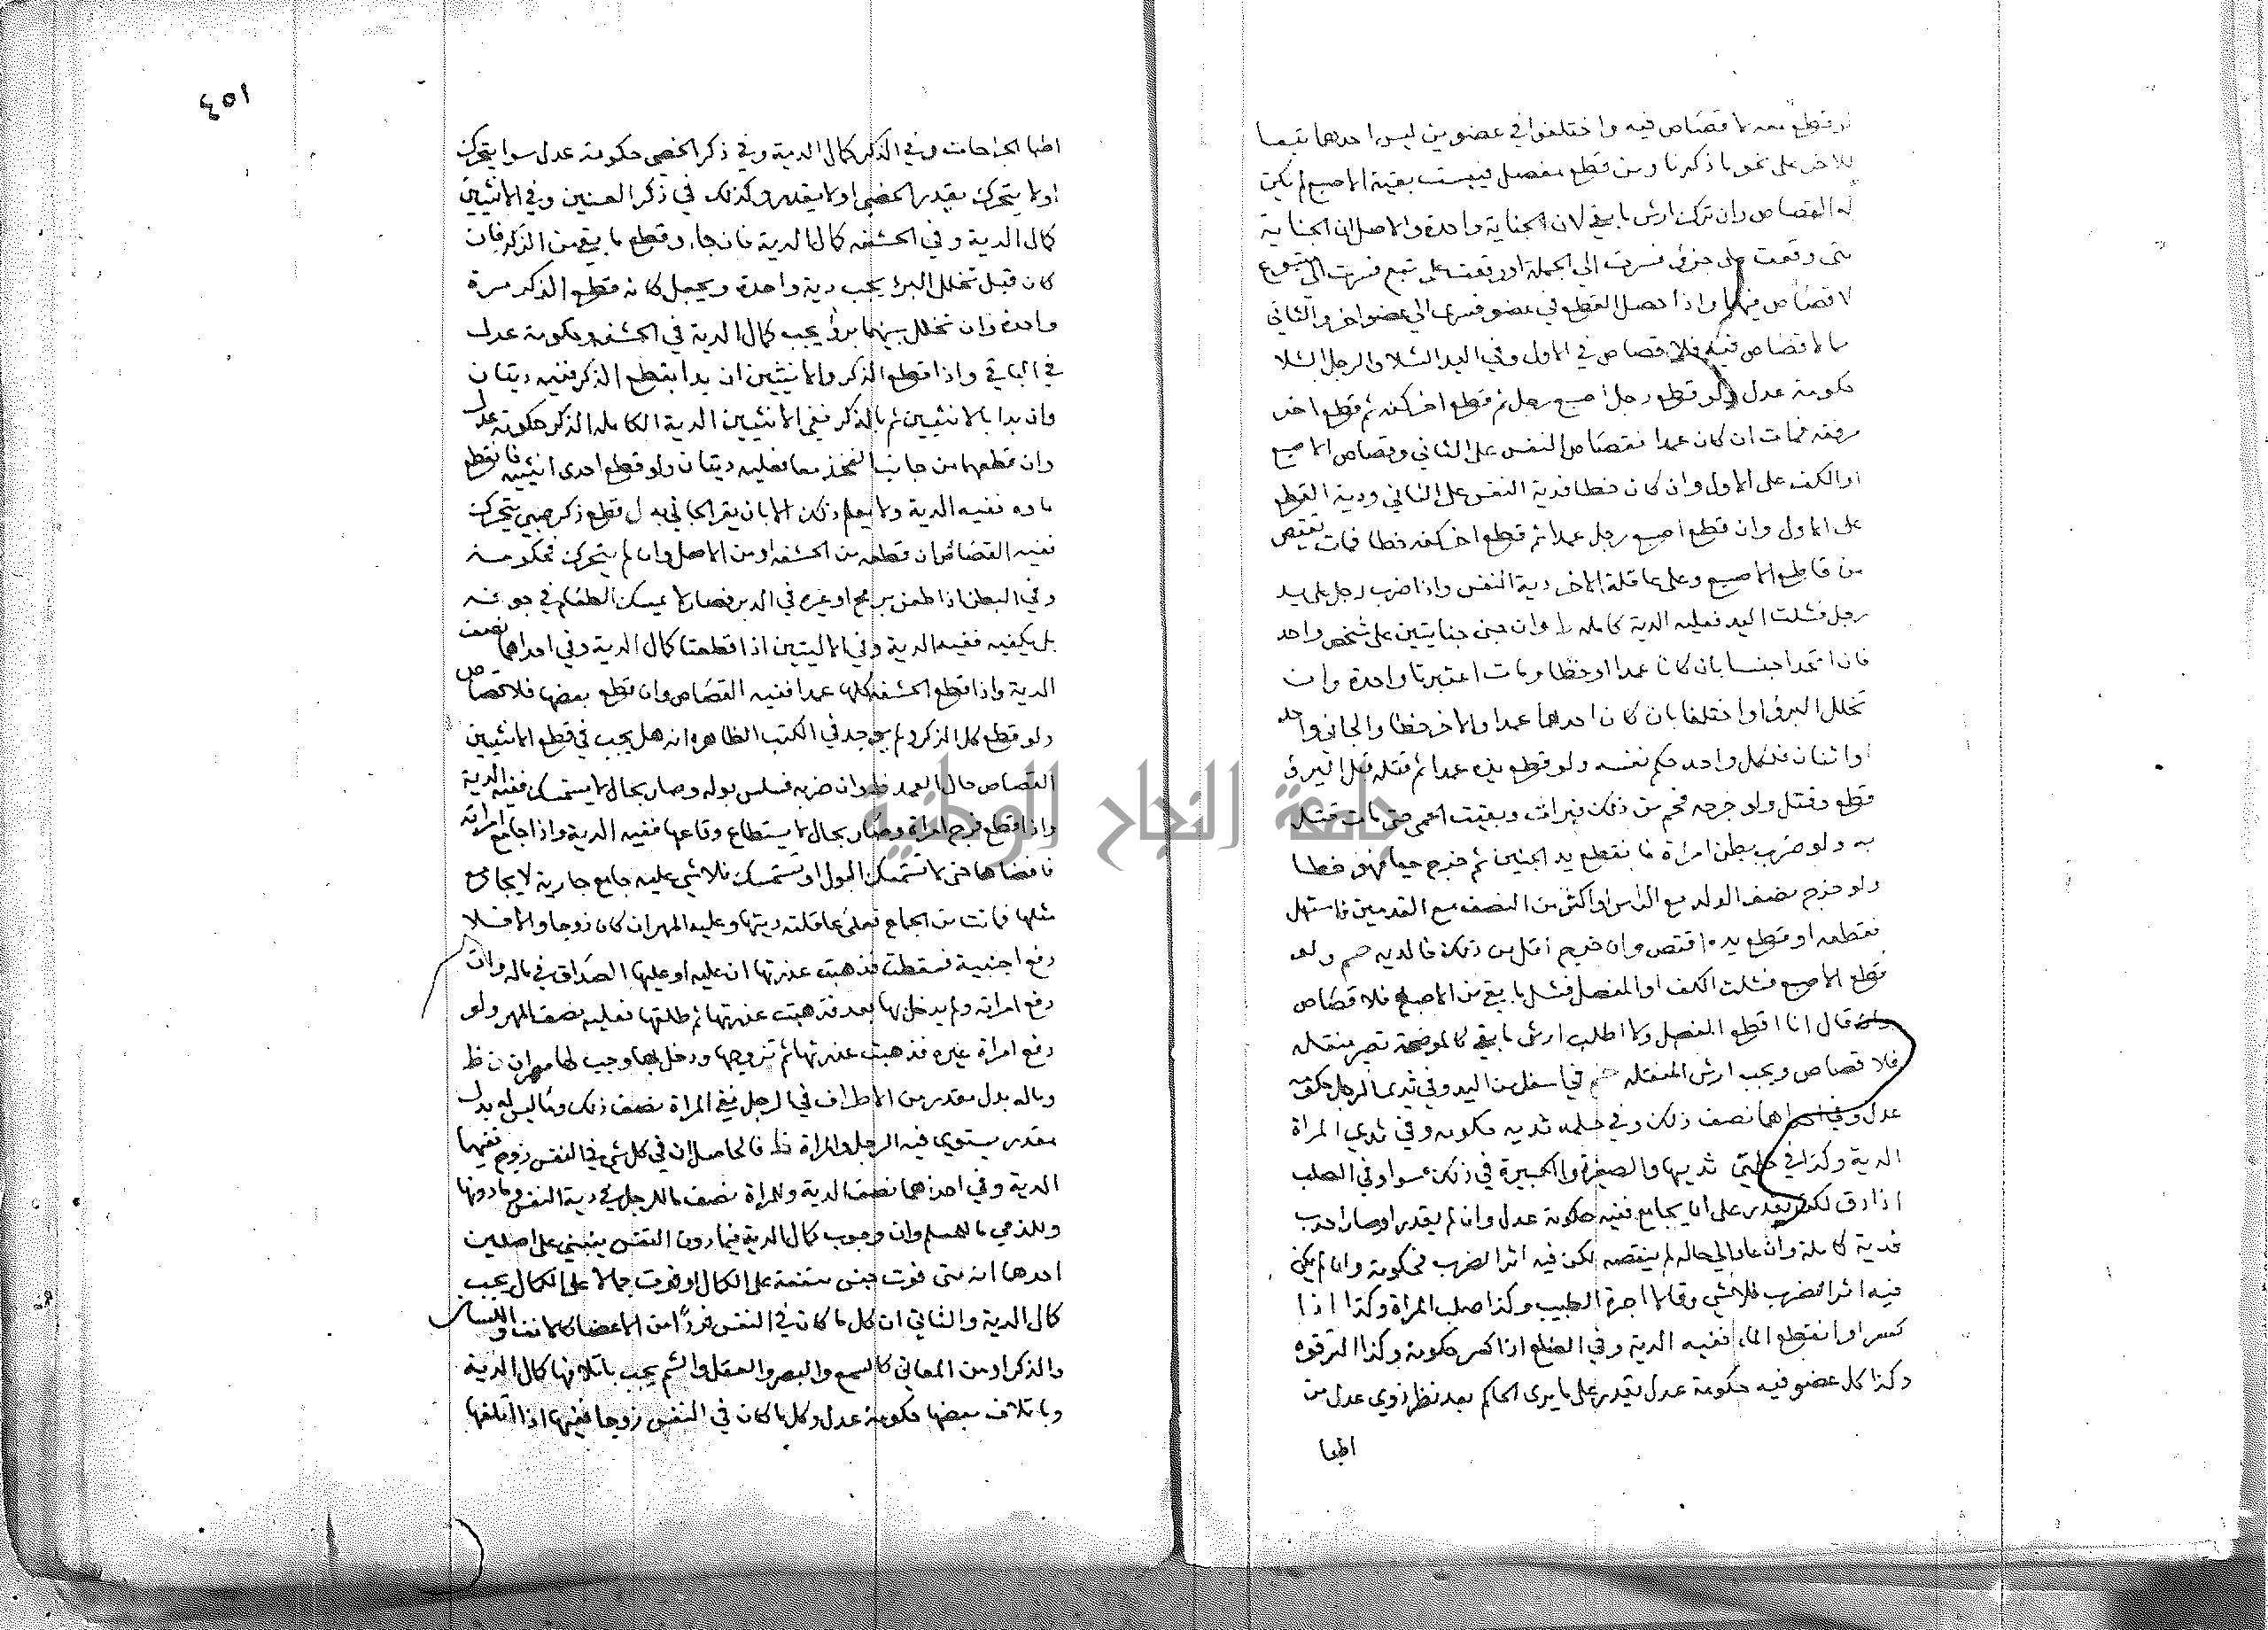 لو قطع معه لا قصاص فيه واختلفوا في عضوين ليس احدهما تبعا
للاخر على نحو ما ذكرنا ومن قطع مفصل فيبست بقية الاصبع لم يكن
له القصاص وان ترك ارش ما بقي لان الجناية واحدة والاصل ان الجناية
متى وقعت على جزء فسرت الى الجملة او وقعت على تبع فسرت الى متبوع
لا قصاص فيها واذا حصل القطع في عضو فسرى الى عضو اخر والثاني
مما لا قصاص فيه فلا قصاص في الاول وفي اليد الشلا والرجل الشلا
حكومة عدل ولو قطع رجل اصبع رجل ثم قطع اخر كفه ثم قطع اخر
مرفقه فمات ان كان عمدا فقصاص النفس على الثاني وقصاص الاصبع
او الكف على الاول وان كان خطا فدية النفس على الثاني ودية القطع
على الاول وان قطع اصبع رجل عمدا ثم قطع اخر كفه خطا فمات يقتص
من قاطع الاصبع وعلى عاقلة الاخر دية النفس واذا ضرب رجل على يد
رجل فشلت اليد فعليه الدية كاملة وان جنى جنايتين على شخص واحد
فان اتحدا جنسا بان كانا عمدا او خطا ومات اعتبرتا واحدة وان
تخلل البرؤ او اختلفا بان كان احدهما عمدا والاخر خطا والجاني واحد
او اثنان فلكل واحد حكم نفسه ولو قطع يده عمدا ثم قتله قبل البرؤ
قطع وقتل ولو جرحه
به ولو ضرب بطن امراة فانقطع يد الجنين ثم خرج حيا فهو خطا
ولو خرج نصف الولد مع الراس او اكثر من النصف مع القدمين فاستهل
فقطعه او قطع يده اقتص وان خرج اقل من ذلك فالدية ولو
قطع الاصبع فشلت الكف او المفصل فشل ما بقي من الاصبع فلا قصاص
وان قال انا اقطع المفصل ولا اطلب ارش ما بقي كالموضحة تصير منقله
فلا قصاص ويجب ارش المنقله وفي ثدي الرجل حكومة
عدل وفي احداهما نصف ذلك وفي حلمة ثديه حكومه وفي ثدي المراة
الدية وكذا في حلمتي ثدييها والصغيرة والكبيرة في ذلك سوا وفي الصلب
اذا دق لكن يقدر على ان يجامع ففيه حكومة عدل وان لم يقدر او صار احدب
فدية كاملة وان عاد الى حاله لم ينقصه لكن فيه اثر الضرب فحكومة وان لم يكن
فيه اثر الضرب فلا شي وقالا اجرة الطبيب وكذا صلب المراة وكذا اذا
كسر او انقطع الماء ففيه الدية وفي الضلع اذا كسر حكومة وكذا الترقوه
وكذا كل عضو فيه حكومة عدل يقدر على ما يرى الحاكم بعد نظر ذوي عدل من
اطبا
٤٥١
اطبا الجراحات وفي الذكر كمال الدية وفي ذكر الخصي حكومة عدل سوا يتحرك
او لا يتحرك يقدر الخصي او لا يقدر وكذلك في ذكر العنين وفي الانثيين
كمال الدية وفي الحشفه كمال الدية فان جاء وقطع ما بقي من الذكر فان
كان قبل تخلل البرؤ يجب دية واحدة ويجعل كانه قطع الذكر مرة
واحدة وان تخلل بينهما برؤ يجب كمال الدية في الحشفه وحكومة عدل
في الباقي واذا قطع الذكر والانثيين ان بدا بقطع الذكر ففيه ديتان
وان بدا بالانثيين ثم بالذكر ففي الانثيين الدية الكاملة الذكر حكومة عدل
وان قطعهما من جانب الفخذ معا فعليه ديتان ولو قطع احدى انثييه فانقطع
ماوه ففيه الدية ولا يعلم ذلك الا بان يقر الجاني به قطع ذكر صبي يتحرك
ففيه القصاص ان قطعه من الحشفه او من الاصل وان لم يتحرك فحكومة
وفي البطن اذا طعن برمح او غيره في الدبر فصار لا يمسك الطعام في جوفه
بل يكفيه ففيه الدية وفي الاليتين اذا قطعتا كمال الدية وفي احداهما نصف
الدية واذا قطع الحشفه كلها عمدا ففيه القصاص وان قطع بعضها فلا قصاص
ولو قطع كل الذكر ولم يوجد في الكتب الظاهره انه هل يجب في قطع الانثيين
القصاص حال العمد وان ضربه فسلس بوله وصار بحال لا يستمسك ففيه الدية
واذا قطع فرج امراة وصار بحال لا يستطاع وقاعها ففيه الدية واذا جامع امراته
فافضاها حتى لا تستمسك البول او تستمسك فلا شي عليه جامع جارية لا يجامع
مثلها فماتت من الجماع فعلى عاقلته ديتها وعليه المهر ان كان زوجا والا فلا
دفع اجنبية فسقطت فذهبت عذرتها ان عليه الصداق في ماله وان
دفع امراته ولم يدخل بها بعد فذهبت عذرتها ثم طلقها فعليه نصف المهر ولو
دفع امراة غيره فذهبت عذرتها ثم تزوجها ودخل بها وجب لها مهران
وماله بدل مقدر من الاطراف في الرجل ففي المراة نصف ذلك وما ليس له بدل
مقدر يستوي فيه الرجل والمراة فالحاصل ان في كل شي في النفس زوج ففيهما
الدية وفي احداهما نصف الدية وللمراة نصف ما للرجل في دية النفس وما دونها
وللذمي ما للمسلم وان وجوب كمال الدية فيما دون النفس يبتني على اصلين
احدها انه متى فوت جنس منفعة على الكمال او فوت جمالا على الكمال يجب
كمال الدية والثاني ان كل ما كان في النفس فردا من الاعضاء كالانف واللسان
والذكر او من المعاني كالسمع والبصر والعقل والشم يجب باتلافها كمال الدية
وباتلاف بعضها حكومة عدل وكل ما كان في النفس زوجا ففيهما اذا اتلفها
جامعة النجاح الوطنية